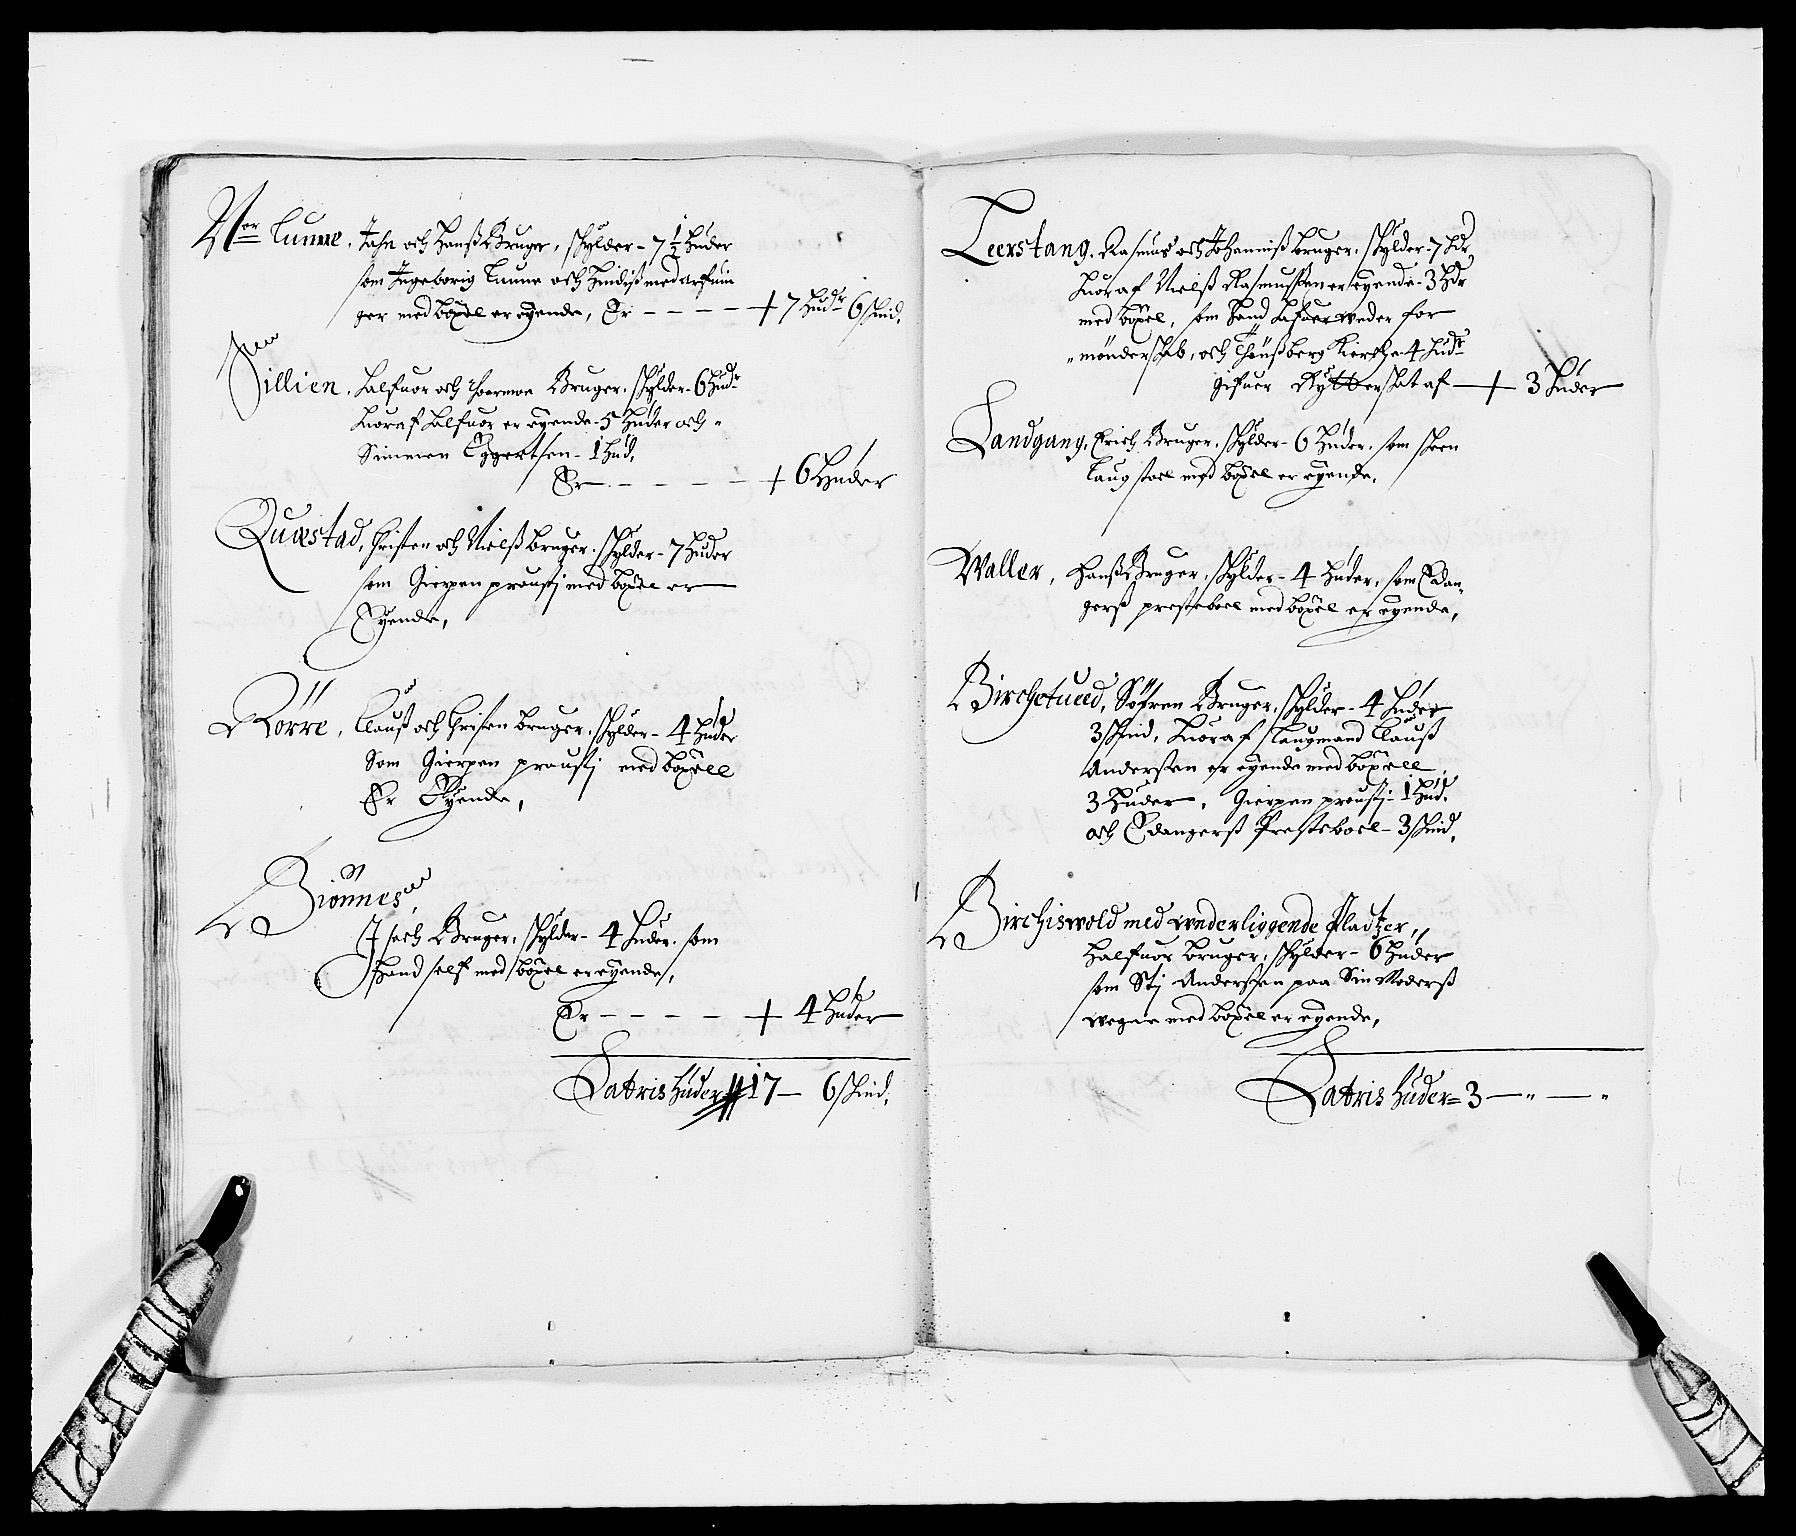 Ner Lunne, Jahn och Hanß Bruger, skylder - 7½ Huder
som Jngeborrig Lunne och Hindiß medarfuin
ger med böxel er eÿende, Er - - - - + 7 Hudr 6 skind.
Sillien, Halfuor och Thormoe Bruger, skylder - 6 Hudr
huoraf Halfuor er eyende - 5 Huder och
Simmen Eggertsen - 1 Hud,
Er - - - - - + 6 Huder
Quæstad, Christen och Nielß bruger, skylder - 7 Huder
som Gierpen proustj med böxel er
Eyende,
Rörre, Clauß och Christen bruger, skylder - 4 Huder
Som Gierpen proustj med böxell
Er Eyende,
Biönnes,
Isach Bruger, skylder - 4 Huder, som
Hand self med böxel er eyende,
Er - - - - + 4 Huder
Latris Huder 17 - 6 skind,
Leerstang, Rasmus och Johanniß bruger, skylder - 7 Hdr
huoraf Nielß Rasmußen er eyende - 3 Hdr
med böxel, som Hand hafuer under for
mönderskab, och Thönßberg Kierche 4 Hudr
gifuer Rytterskat af - + 3 Huder
Landgang, Erich Bruger, skylder - 6 Huder, som skeen
Laugstoel med böxel er eyende,
Waller, Hanß Bruger, skylder - 4 Huder, som Edan,
gerß presteboel med böxel er eyende,
Birchetued, Söfren Bruger, skylder - 4 Huder
3 skind, huoraf Laugmand Clauß
Anderßen er eyende med böxell
3 Huder, Gierpen proustj - 1 Hud,
och Edangerß Presteboel - 3 skind,
Birchiswold med underliggende Pladtzer,,
Halfuor bruger, skylder - 6 Huder
som Stj Anderßen paa Sin Moderß
wegne med böxel er eyende,
Latris Huder = 3 - „ - „